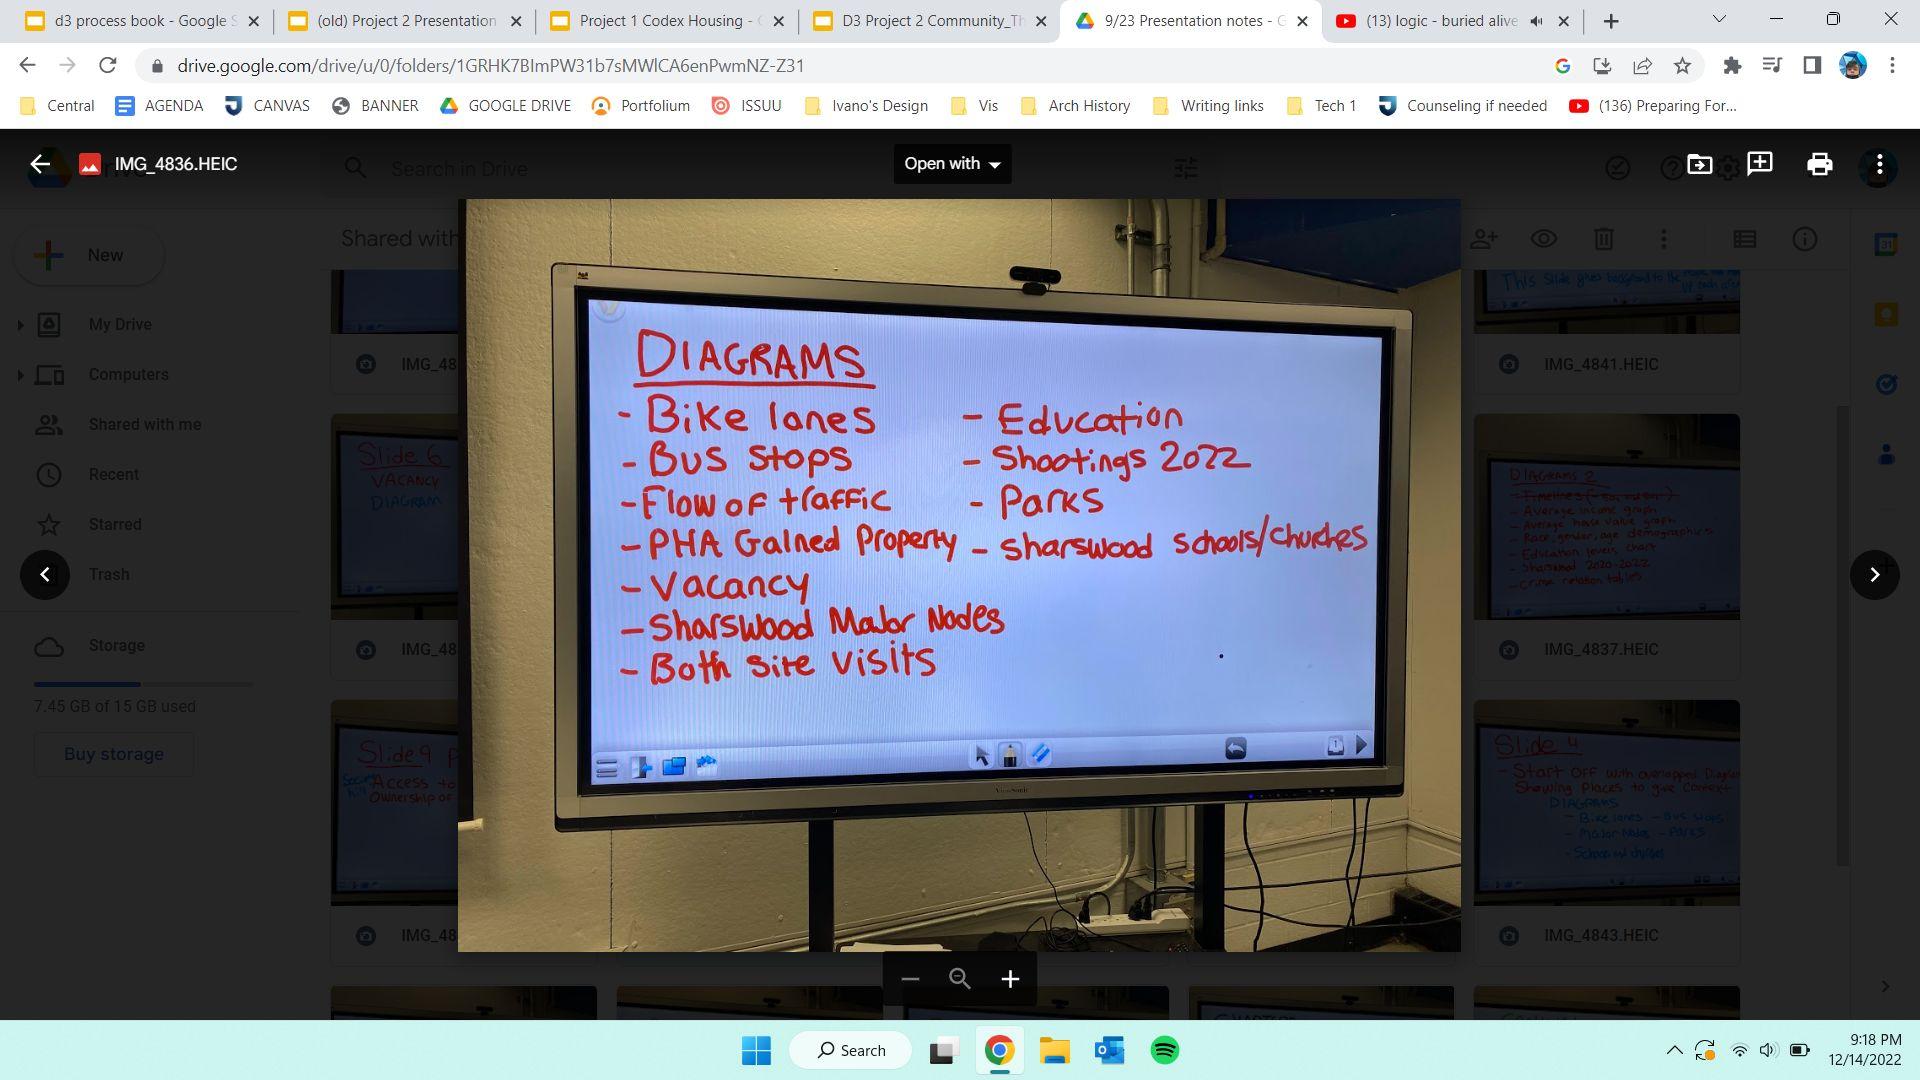 d3 process book - Google S
(old) Project 2 Presentation
Project 1 Codex Housing - G
D3 Project 2 Community_Th
9/23 Presentation notes - G
(13) logic - buried alive
drive.google.com/drive/u/0/folders/1GRHK7BImPW31b7sMWlCA6enPwmNZ-Z31
Central
AGENDA
CANVAS
BANNER
GOOGLE DRIVE
Portfolium
ISSUU
Ivano's Design
Vis
Arch History
Writing links
Tech 1
Counseling if needed
(136) Preparing For...
IMG_4836.HEIC
Search in Drive
Open with
New
Shared with
My Drive
Computers
Shared with me
Recent
Starred
Trash
Storage
7.45 GB of 15 GB used
Buy storage
DIAGRAMS
- Bike lanes
- Bus Stops
- Flow of traffic
- PHA Gained Property
- Vacancy
- Sharswood Major Nodes
- Both Site Visits
- Education
- Shootings 2022
- Parks
- Sharswood Schools/Churches
ViewSonic
IMG_48
Slide 6
VACANCY
DIAGRAM
IMG_48
Slide 9 P
Access to
Ownership of
IMG_48
This Slide gives background to the
IMG_4841.HEIC
DIAGRAMS 2
- Average income graph
- Average house value graph
- Race, gender, age demographics
- Education levels chart
- Sharswood 2020-2022
- Crime relation tables
IMG_4837.HEIC
Slide 4
- Start OFF with overlapped Diagram
Showing Places to give Context
DIAGRAMS
- Bike lanes - Bus stops
- Major Nodes - Parks
- School and churches
IMG_4843.HEIC
Search
9:18 PM
12/14/2022